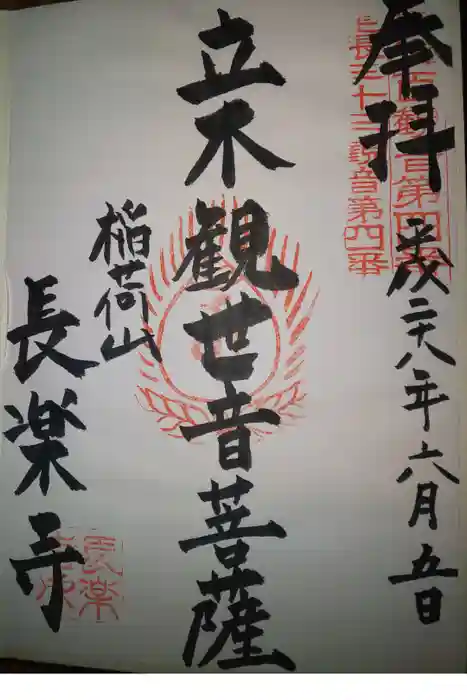 奉拝
平成二十八年六月五日
長三十三観音第四番
立木観世音菩薩
稲荷山
長楽寺
長楽